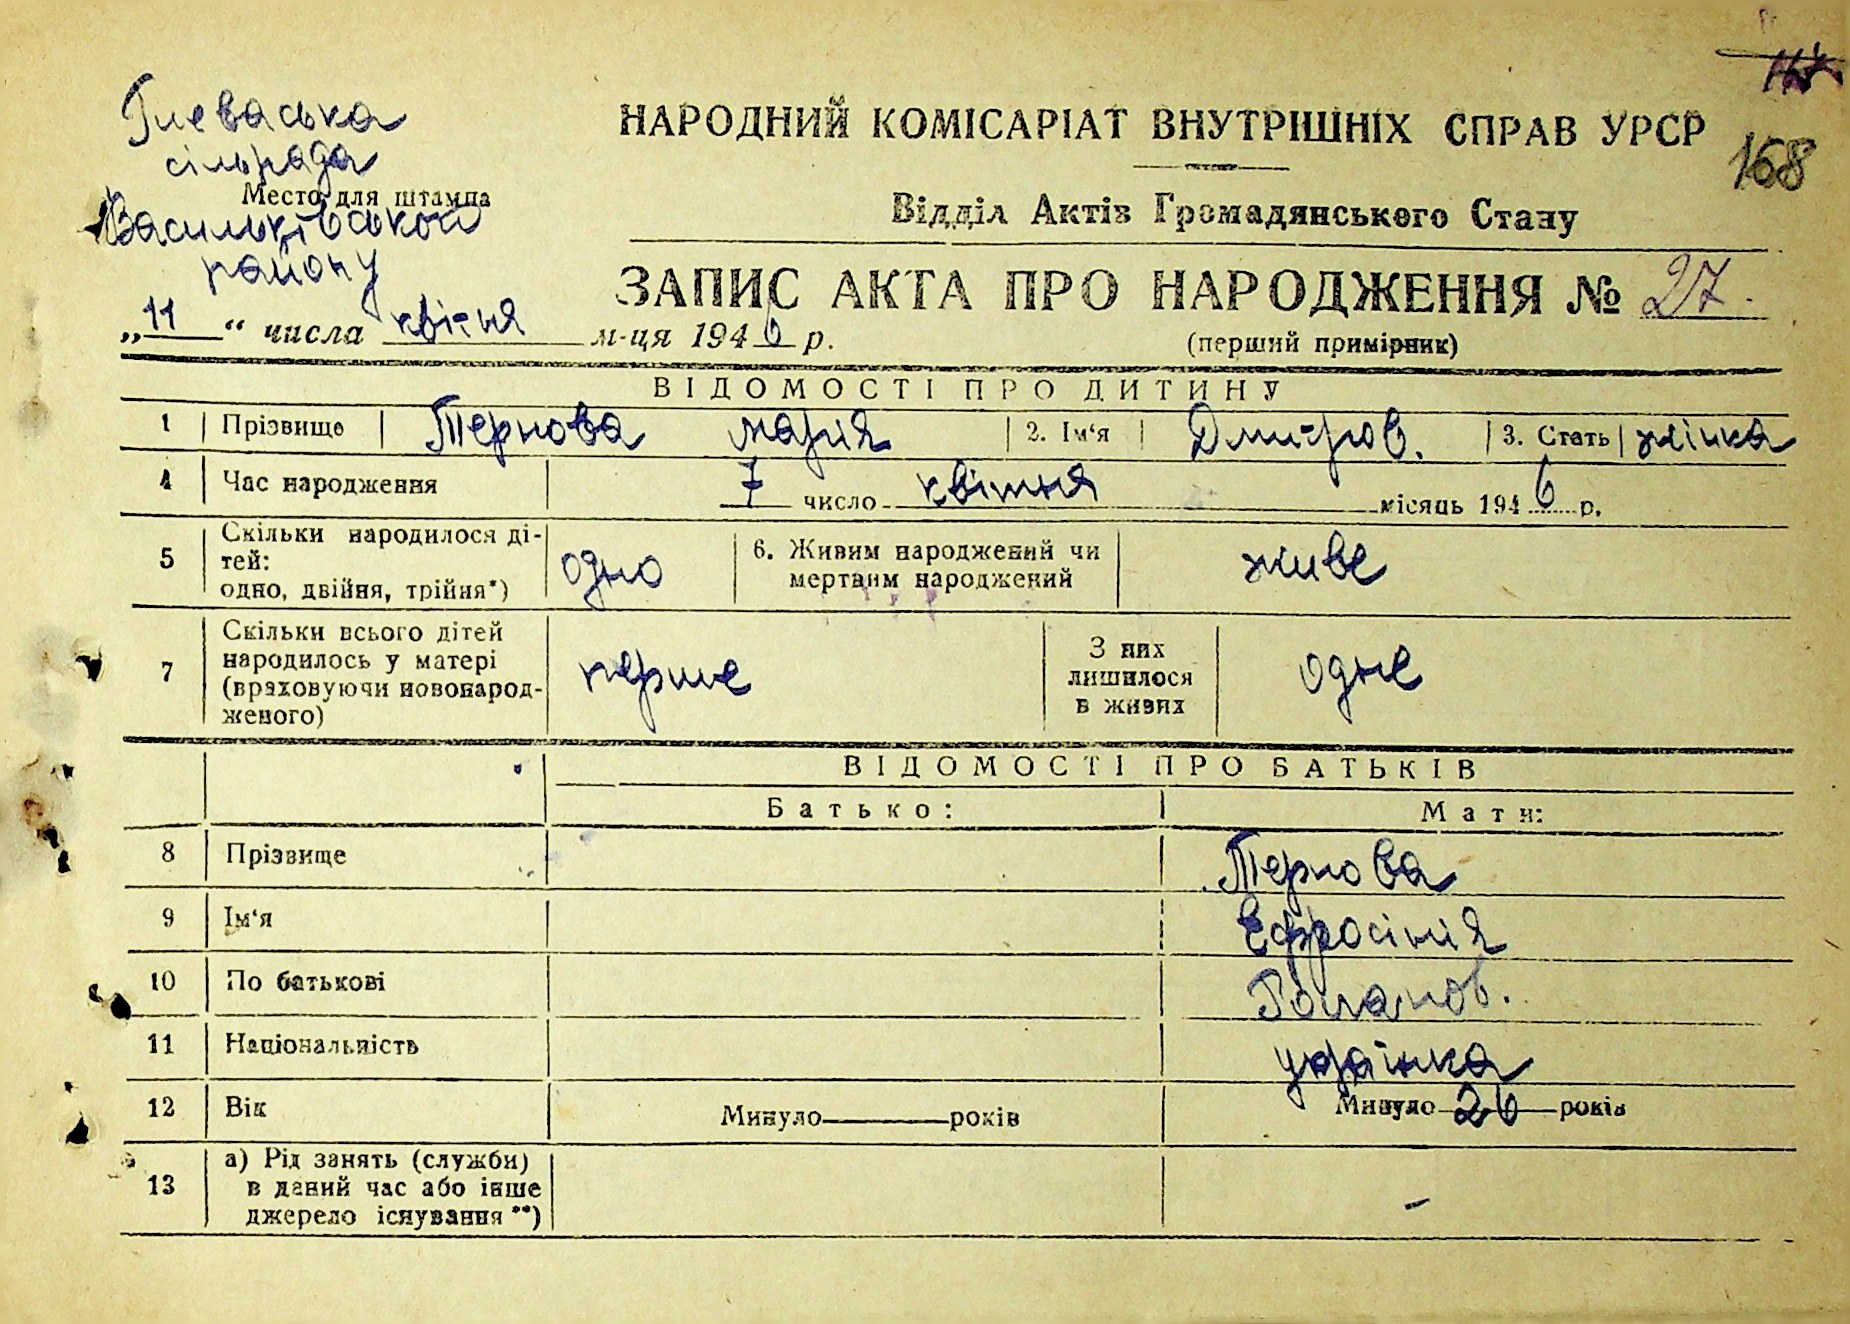 Глеваська
сільрада
Место для штампа
Васильківського
району
„11“ числа квітня м-ця 1946 р.
168
НАРОДНИЙ КОМІСАРІАТ ВНУТРІШНІХ СПРАВ УРСР
Відділ Актів Громадянського Стану
ЗАПИС АКТА ПРО НАРОДЖЕННЯ № 27.
(перший примірник)
ВІДОМОСТІ ПРО ДИТИНУ
1 Прізвище Тернова марія 2. Ім‘я Дмитров. 3. Стать жінка
4 Час народження 7 число квітня місяць 1946 р.
5 Скільки народилося ді-
тей:
одно, двійня, трійня*) одно
6. Живим народжений чи
мертвим народжений живе
7 Скільки всього дітей
народилось у матері
(враховуючи новонарод-
женого) перше
З них
лишилося
в живих одне
ВІДОМОСТІ ПРО БАТЬКІВ
Батько: Мати:
8 Прізвище Тернова
9 Ім‘я Єфросінія
10 По батькові Романов.
11 Національність українка
12 Вік Минуло років Минуло 26 років
13 а) Рід занять (служби)
в даний час або інше
джерело існування**) –